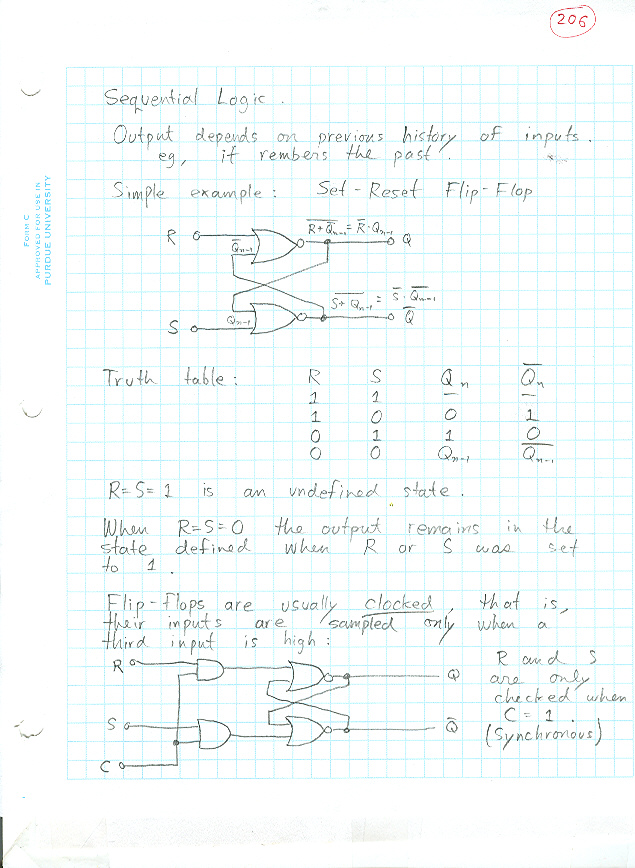 206
FORM C
APPROVED FOR USE IN
PURDUE UNIVERSITY
Sequential Logic.
Output depends on previous history of inputs.
eg, it rembers the past.
Simple example: Set-Reset Flip-Flop
R
Q̅ₙ₋₁
R̅+̅Q̅ₙ₋₁ = R̅·Qₙ₋₁
Q
S
Qₙ₋₁
S̅+̅Q̅ₙ₋₁ = S̅·Q̅ₙ₋₁
Q̅
Truth table: R S Qₙ Q̅ₙ
1 1 — —
1 0 0 1
0 1 1 0
0 0 Qₙ₋₁ Q̅ₙ₋₁
R=S=1 is an undefined state.
When R=S=0 the output remains in the
state defined when R or S was set
to 1.
Flip-Flops are usually clocked, that is,
their inputs are sampled only when a
third input is high:
R
S
C
Q
Q̅
R and S
are only
checked when
C=1.
(Synchronous)